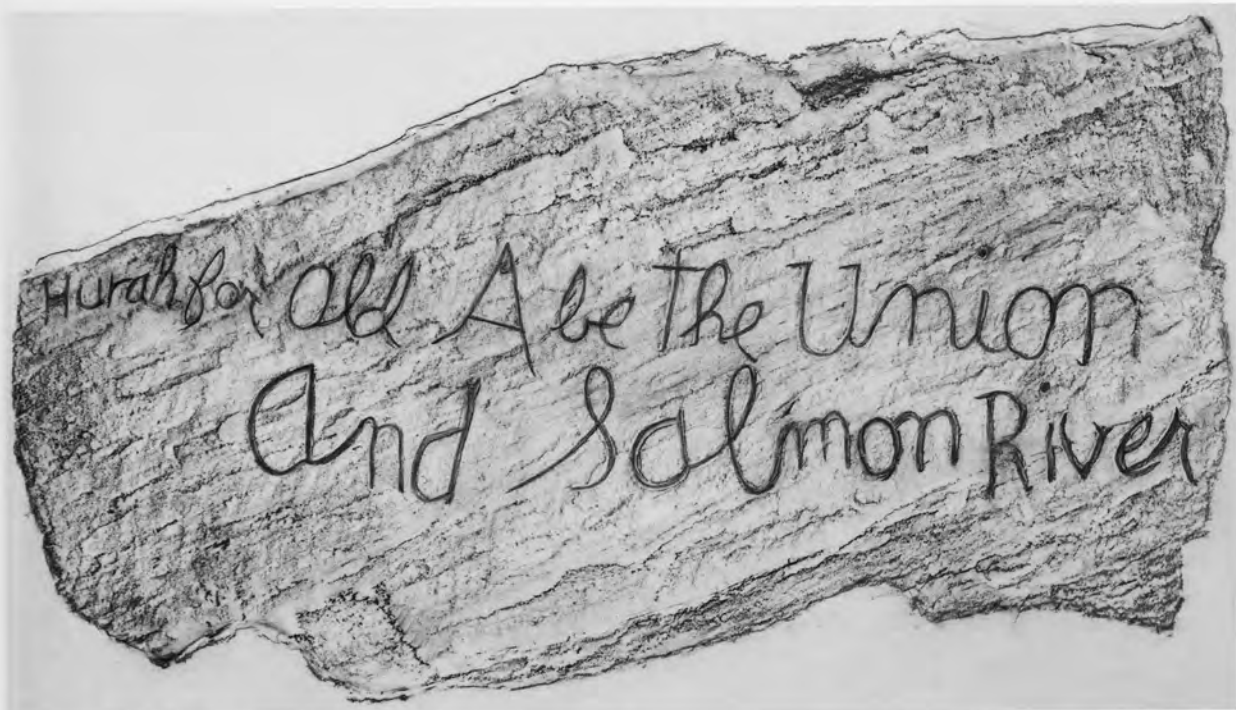 Hurah for Old Abe The Union
And Salmon River